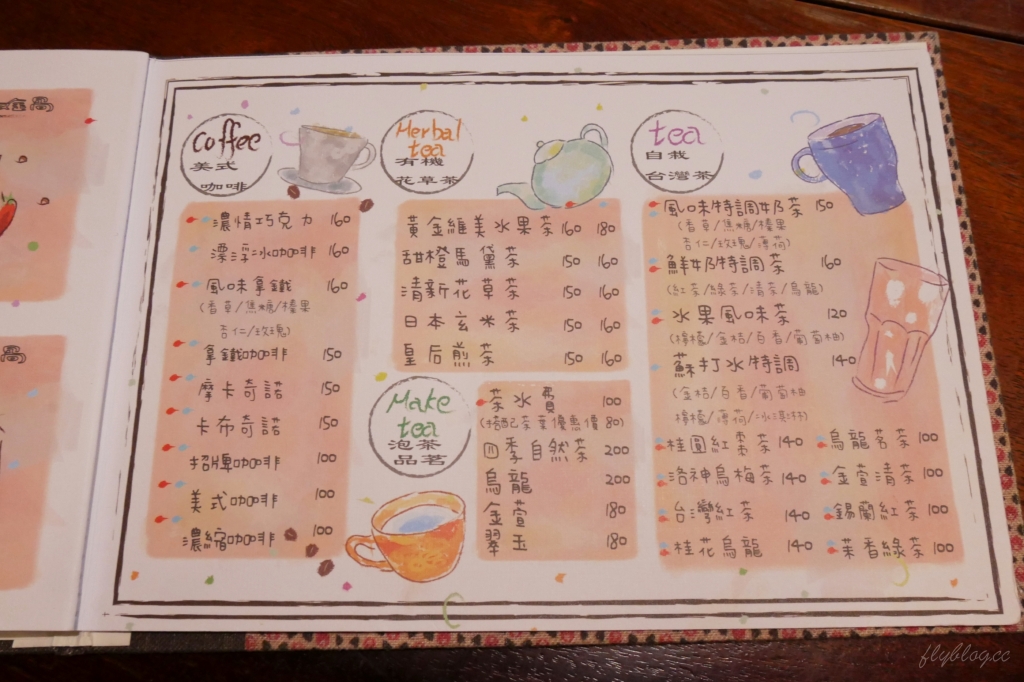 coffee
美式
咖啡
濃情巧克力 160
漂浮冰咖啡 160
風味拿鐵 160
(香草/焦糖/榛果
杏仁/玫瑰)
拿鐵咖啡 150
摩卡奇諾 150
卡布奇諾 150
招牌咖啡 100
美式咖啡 100
濃縮咖啡 100
Herbal
tea
有機
花草茶
黃金維美水果茶 160 180
甜橙馬黛茶 150 160
清新花草茶 150 160
日本玄米茶 150 160
皇后煎茶 150 160
Make
tea
泡茶
品茗
茶水費 100
(搭配茶葉優惠價 80)
四季自然茶 200
烏龍 200
金萱 180
翠玉 180
tea
自栽
台灣茶
風味特調奶茶 150
(香草/焦糖/榛果
杏仁/玫瑰/薄荷)
鮮奶特調茶 160
(紅茶/綠茶/清茶/烏龍)
水果風味茶 120
(檸檬/金桔/百香/葡萄柚)
蘇打水特調 140
(金桔/百香/葡萄柚
檸檬/薄荷/冰淇淋)
桂圓紅棗茶 140
洛神烏梅茶 140
台灣紅茶 140
桂花烏龍 140
烏龍茗茶 100
金萱清茶 100
錫蘭紅茶 100
茉香綠茶 100
flyblog.cc